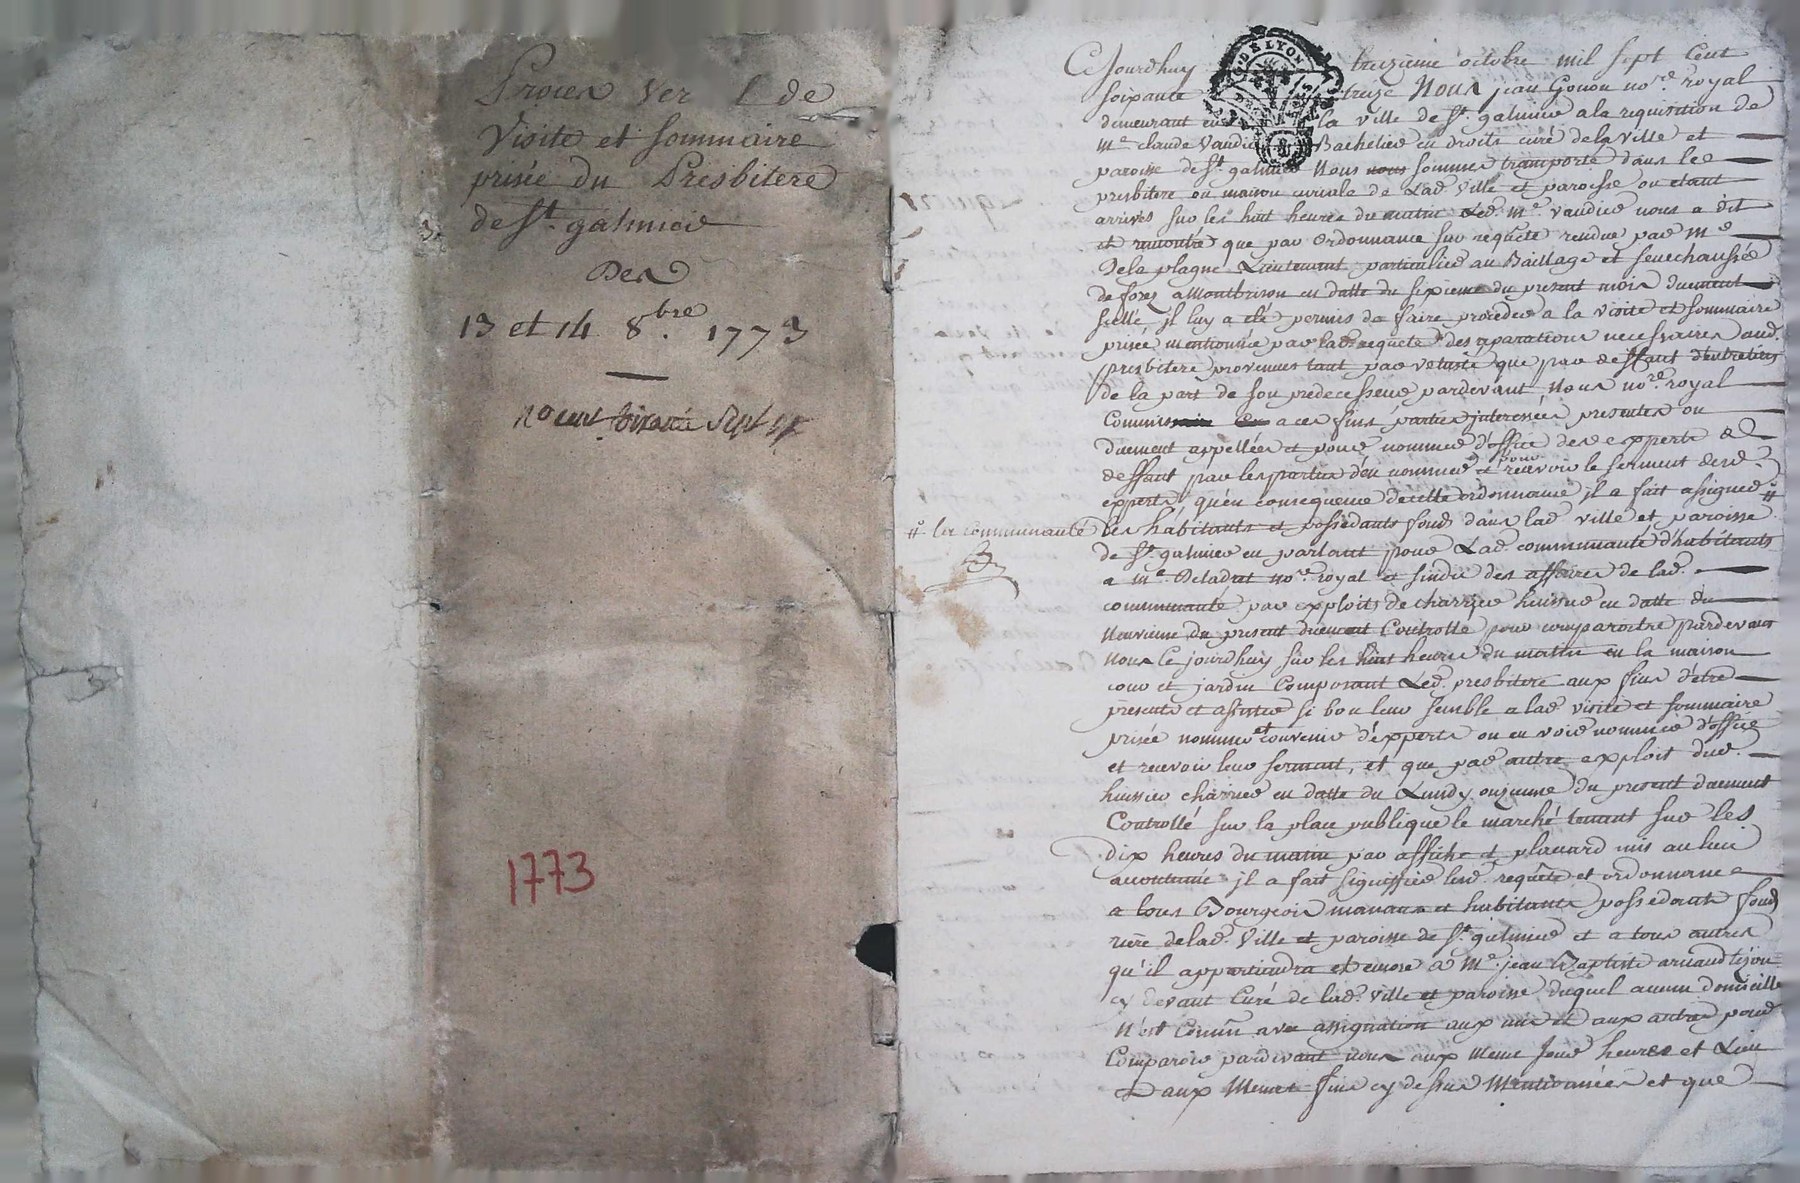 Procés Ver l de
Visite et Sommaire
prisée du Presbitere
de St. galmier
Des
13 et 14 8.bre 1773
1773
Cejourdhuy treizieme octobre mil sept Cent
soixante treize Nous jean Gonon no.re royal
demeurant en la ville de St. galmier a la requisition de
me claude Vaudier Bachelier en droits curé de la ville et
paroisse de St. galmier Nous nous sommes transporté dans le
presbitere ou maison curiale de Lad. ville et paroisse ou etant
arrivés sur les huit heures du matin Led. Me. vaudier nous a dit
et remontré que par ordonnance sur requete rendue par Me
Dela plagne Lieutenant particulier au Baillage et senechaussée
de forez a Montbrison en datte du sixieme du present mois duement
scellé, il luy a eté permis de faire proceder a la visite et sommaire
prisée mentionnée par lad. requete des reparations necessaires aud.
presbitere provenues tant par vetusté que par deffaut d'entretiens
de la part de son predecesseur pardevant Nous no.re royal
Commis a ces fins parties interessées presentes ou
duement appellées et pour nommer d'office des experts a
deffaut par les parties d'en nommer et pour recevoir le serment desd.
experts, qu'en consequence de cette ordonnance il a fait assigner #
# la communauté
des habitants et possedants fonds dans lad ville et paroisse
de St. galmier en parlant pour Lad. communauté d'habitants
a Me Deladret no.re royal et sindic des affaires de lad.
communauté par exploits de charrier huissier en datte du
neuvieme du present duement Controllé pour comparoitre pardevant
nous Cejourdhuy sur les huit heures du matin en la maison
cour et jardin Composant Led. presbitere aux fins d'etre
presents et assister si bon leur semble a lad. visite et sommaire
prisée nommer et convenir d'experts ou en voir nommer d'office
et recevoir leur serment, et que par autre exploit dud.
huissier charrier en datte du Lundy onzieme du present duement
Controllé sur la place publique le marché tenant sur les
dix heures du matin par affiche et placard mis au lieu
accoutumé il a fait signiffier lesd. requête et ordonnance
a tous Bourgeois manans et habitants possedants fonds
riere delad. Ville et paroisse de St. galmier et a tous autres
qu'il appartiendra et encore a Me. jean Baptiste arnaud tejon
cy devant Curé de lad. ville et paroisse duquel aucun domicille
N'est Connu avec assignation aux uns et aux autres pour
Comparoir pardevant nous aux meme Jour heures et Lieu
et aux Memes fins cy dessus Mentionnées et que